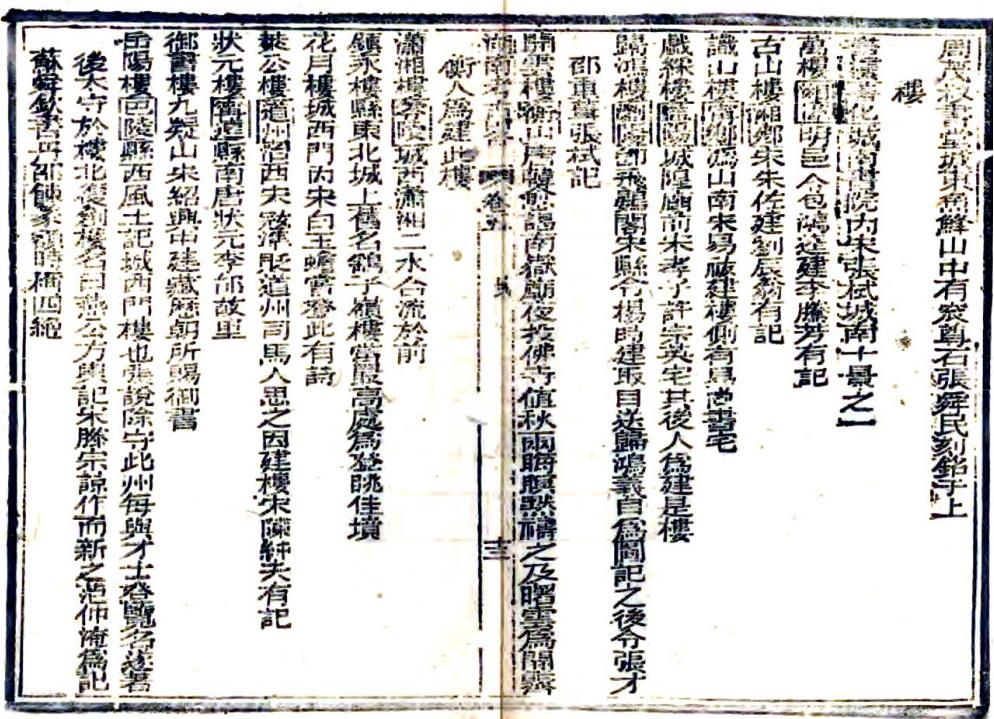 周茂叔書堂城東魚鮮山中有窊尊石張舜民刻銘于上
樓
化城南書院內宋張栻城南十景之一
萬樓湘潭明邑令包鴻逵建李騰芳有記
古山樓湘鄉宋朱佐建劉辰翁有記
識山樓甯鄉潙山南宋易祓建樓側有易尚書宅
戲綵樓瀏陽城隍廟前宋孝子許宗英宅其後人爲建是樓
歸鴻樓瀏陽卽飛鷃閣宋縣令楊時建取目送歸鴻義自爲圖記之後令張才
邵重葺張栻記
開雲樓衡山唐韓愈謁南嶽廟夜投佛寺值秋雨晦暝默禱之及曙雲爲開霽
湖南 卷 十三
衡人爲建此樓
瀟湘樓零陵城西瀟湘二水合流於前
鎮永樓縣東北城上舊名鶴子嶺樓當最高處爲登眺佳境
花月樓城西門內宋白玉蟾嘗登此有詩
萊公樓道州治西宋寇準貶道州司馬人思之因建樓宋陳純夫有記
狀元樓甯遠縣南唐狀元李郃故里
御書樓九疑山宋紹興中建藏歷朝所賜御書
岳陽樓巴陵縣西風土記城西門樓也張說除守此州每與才士登覽名遂著
後太守於樓北復創樓名曰燕公方輿記宋滕宗諒作而新之范仲淹爲記
蘇舜欽書丹邵餗篆額時稱四絕